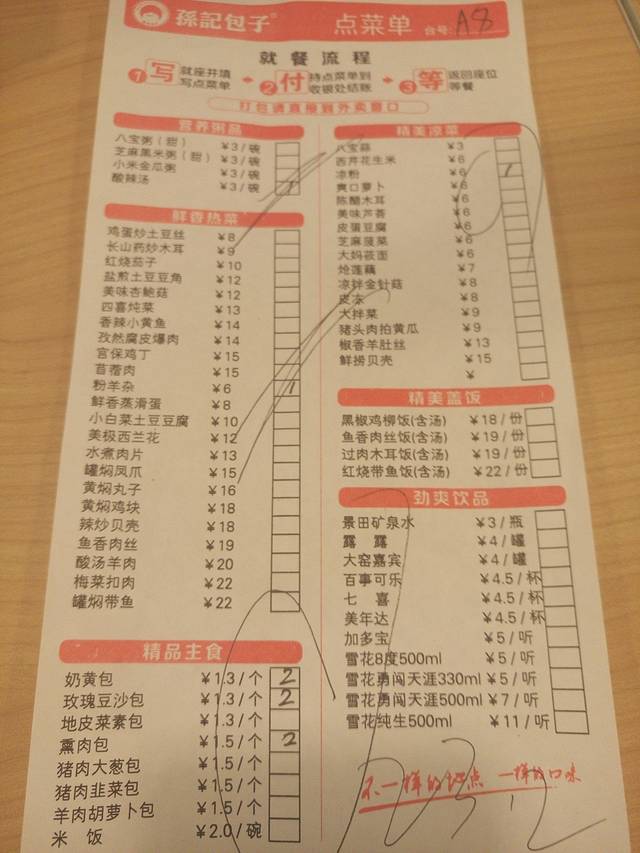 孫記包子
点菜单 台号: A8
就餐流程
1 写 就座并填写点菜单
2 付 持点菜单到收银处结账
3 等 返回座位等餐
打包请直接到外卖窗口
营养粥品
八宝粥（甜） ¥3/碗
芝麻黑米粥（甜） ¥3/碗
小米金瓜粥 ¥3/碗
酸辣汤 ¥3/碗 1
鲜香热菜
鸡蛋炒土豆丝 ¥8
长山药炒木耳 ¥9
红烧茄子 ¥10
盐煎土豆豆角 ¥12
美味杏鲍菇 ¥12
四喜炖菜 ¥13
香辣小黄鱼 ¥14
孜然腐皮爆肉 ¥14
宫保鸡丁 ¥15
苜蓿肉 ¥15
粉羊杂 ¥6 1
鲜香蒸滑蛋 ¥8
小白菜土豆豆腐 ¥10
美极西兰花 ¥12
水煮肉片 ¥13
罐焖凤爪 ¥15
黄焖丸子 ¥16
黄焖鸡块 ¥18
辣炒贝壳 ¥18
鱼香肉丝 ¥19
酸汤羊肉 ¥20
梅菜扣肉 ¥22
罐焖带鱼 ¥22
精品主食
奶黄包 ¥1.3/个 2
玫瑰豆沙包 ¥1.3/个 2
地皮菜素包 ¥1.3/个
熏肉包 ¥1.5/个 2
猪肉大葱包 ¥1.5/个
猪肉韭菜包 ¥1.5/个
羊肉胡萝卜包 ¥1.5/个
米饭 ¥2.0/碗
精美凉菜
八宝蒜 ¥3
西芹花生米 ¥6
凉粉 ¥6 1
爽口萝卜 ¥6
陈醋木耳 ¥6
美味芦荟 ¥6
皮蛋豆腐 ¥6
芝麻菠菜 ¥6
大妈莜面 ¥6
炝莲藕 ¥7
凉拌金针菇 ¥8
皮冻 ¥8
大拌菜 ¥9
猪头肉拍黄瓜 ¥9
椒香羊肚丝 ¥13
鲜捞贝壳 ¥15
¥
精美盖饭
黑椒鸡柳饭(含汤) ¥18/份
鱼香肉丝饭(含汤) ¥19/份
过肉木耳饭(含汤) ¥19/份
红烧带鱼饭(含汤) ¥22/份
劲爽饮品
景田矿泉水 ¥3/瓶
露露 ¥4/罐
大窑嘉宾 ¥4/罐
百事可乐 ¥4.5/杯
七喜 ¥4.5/杯
美年达 ¥4.5/杯
加多宝 ¥5/听
雪花8度500ml ¥5/听
雪花勇闯天涯330ml ¥5/听
雪花勇闯天涯500ml ¥7/听
雪花纯生500ml ¥11/听
不一样的地点 一样的口味